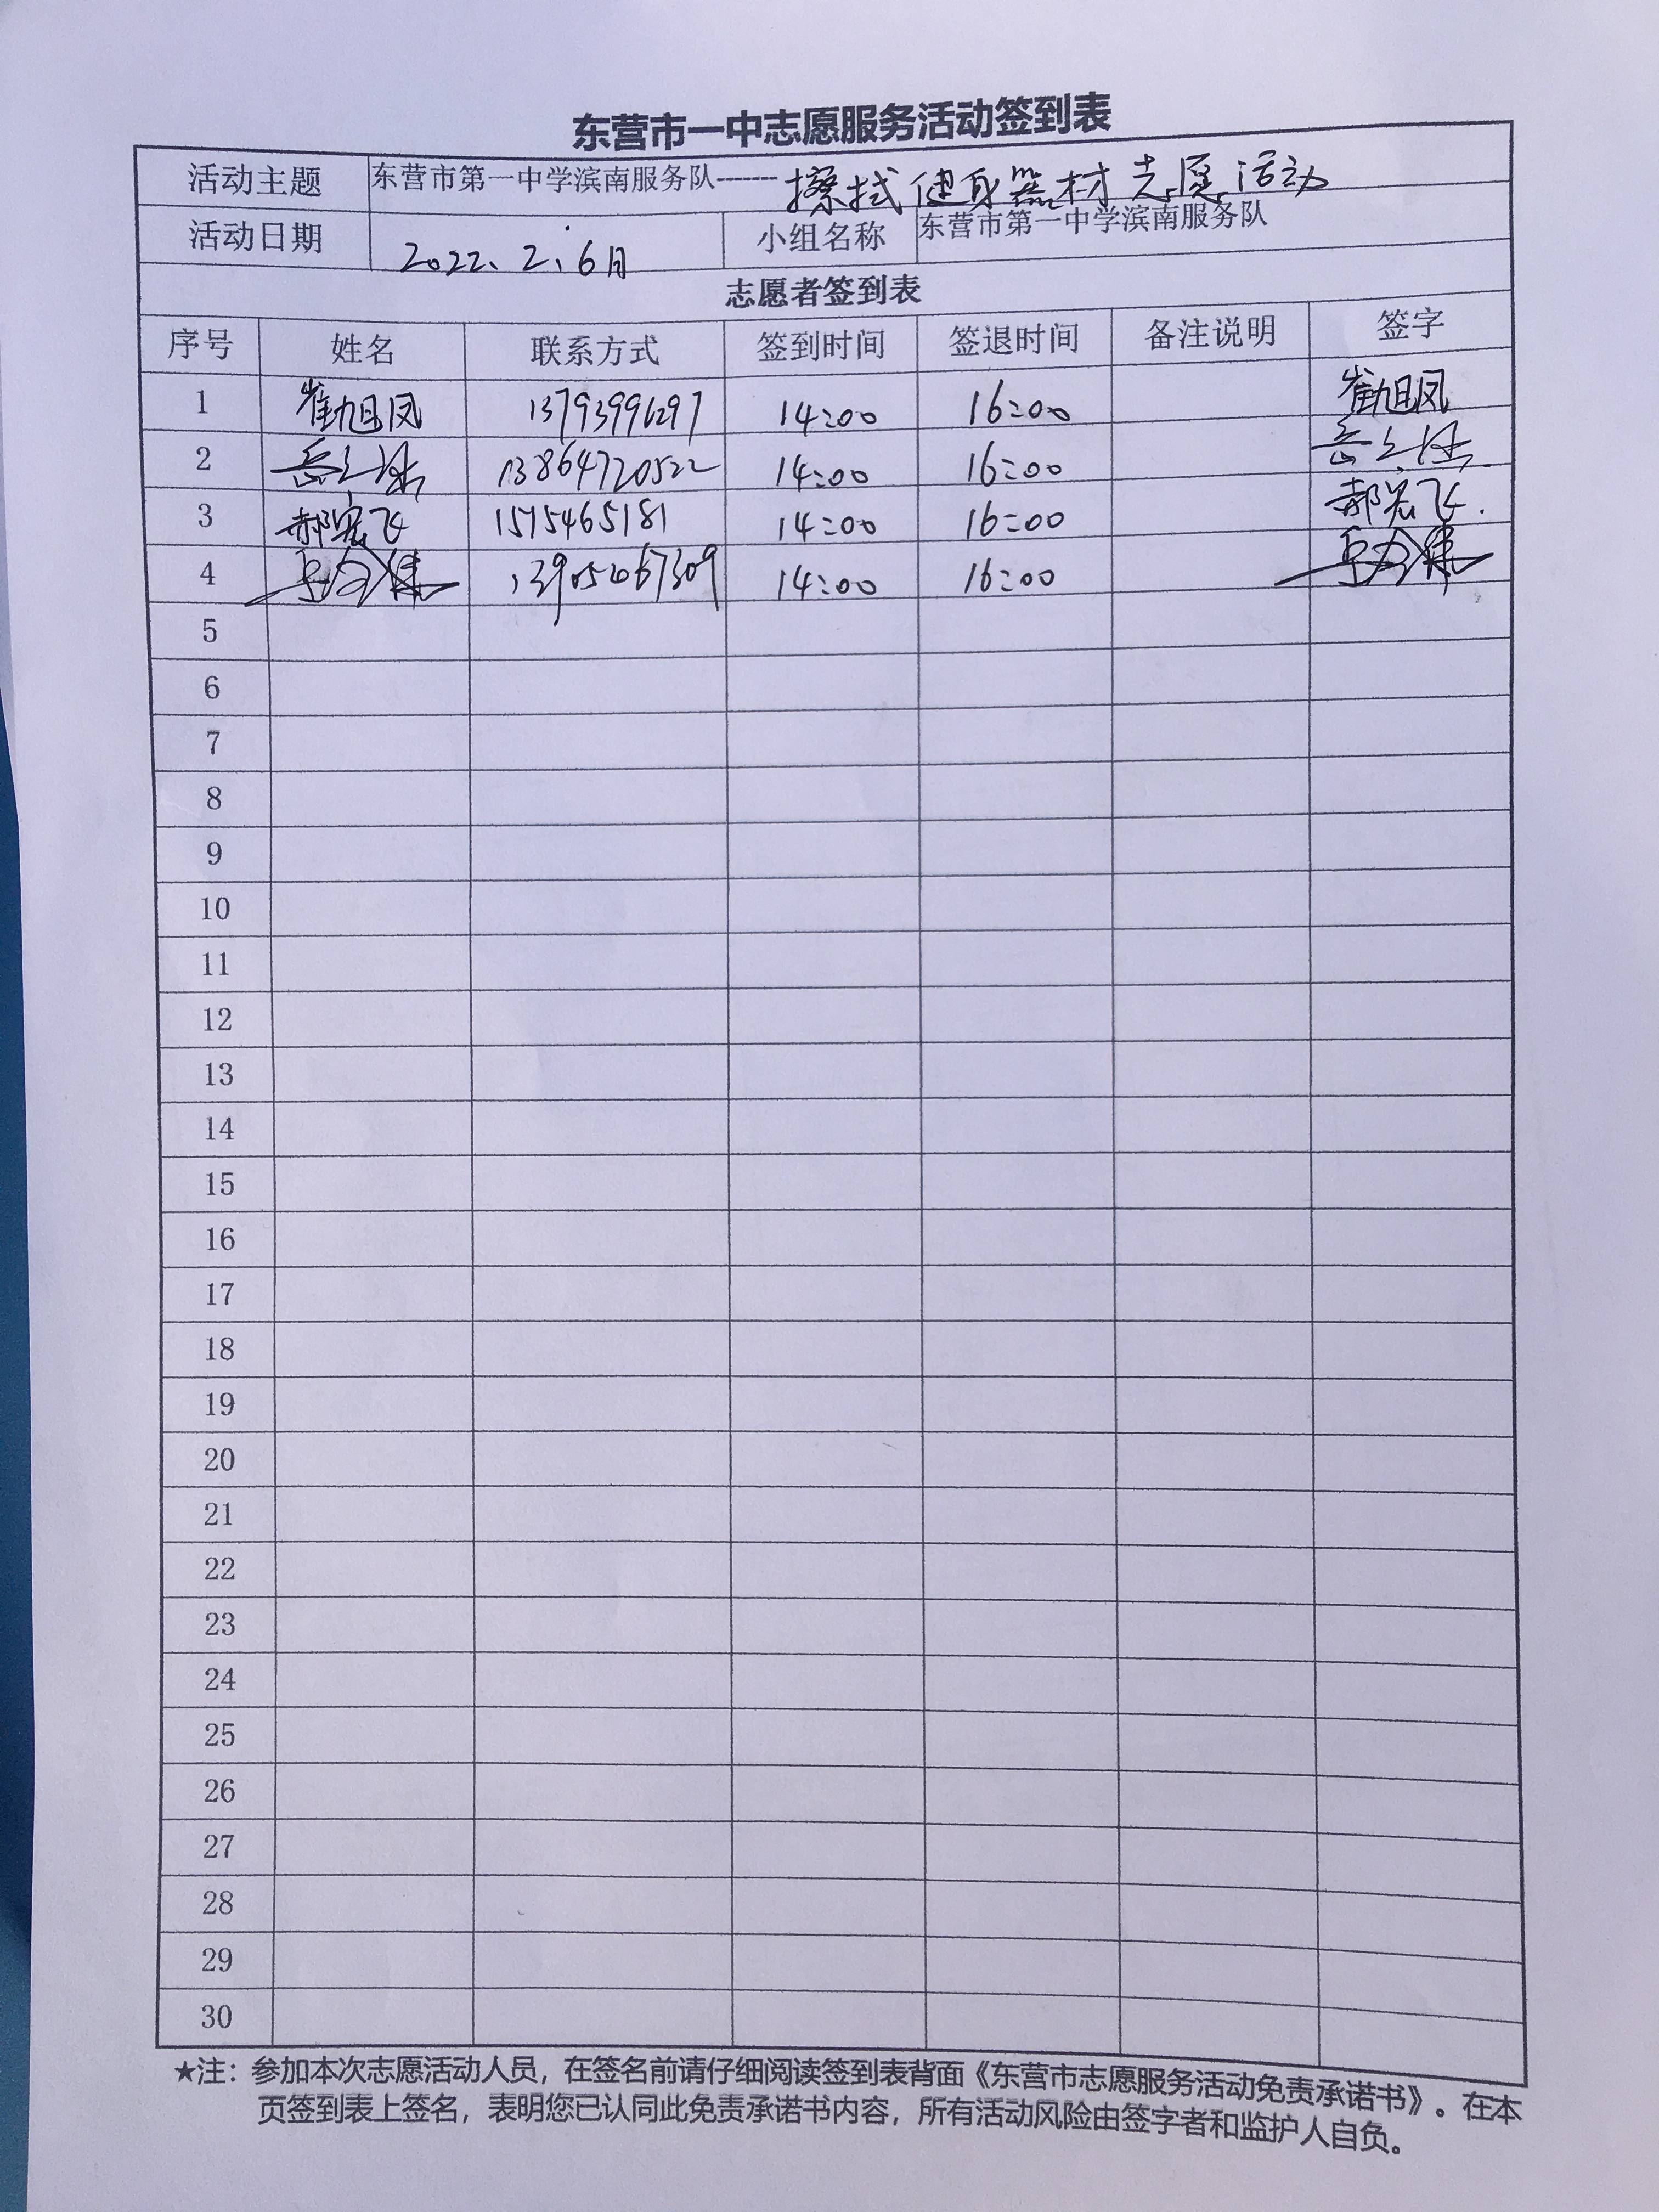 东营市一中志愿服务活动签到表
活动主题 东营市第一中学滨南服务队------擦拭健身器材志愿活动
活动日期 2022、2、6日 小组名称 东营市第一中学滨南服务队
志愿者签到表
序号 姓名 联系方式 签到时间 签退时间 备注说明 签字
1 崔旭凤 13793996297 14:00 16:00 崔旭凤
2 13864720522 14:00 16:00
3 郝宏飞 1575465181 14:00 16:00 郝宏飞.
4 14:00 16:00
5
6
7
8
9
10
11
12
13
14
15
16
17
18
19
20
21
22
23
24
25
26
27
28
29
30
★注：参加本次志愿活动人员，在签名前请仔细阅读签到表背面《东营市志愿服务活动免责承诺书》。在本
页签到表上签名，表明您已认同此免责承诺书内容，所有活动风险由签字者和监护人自负。